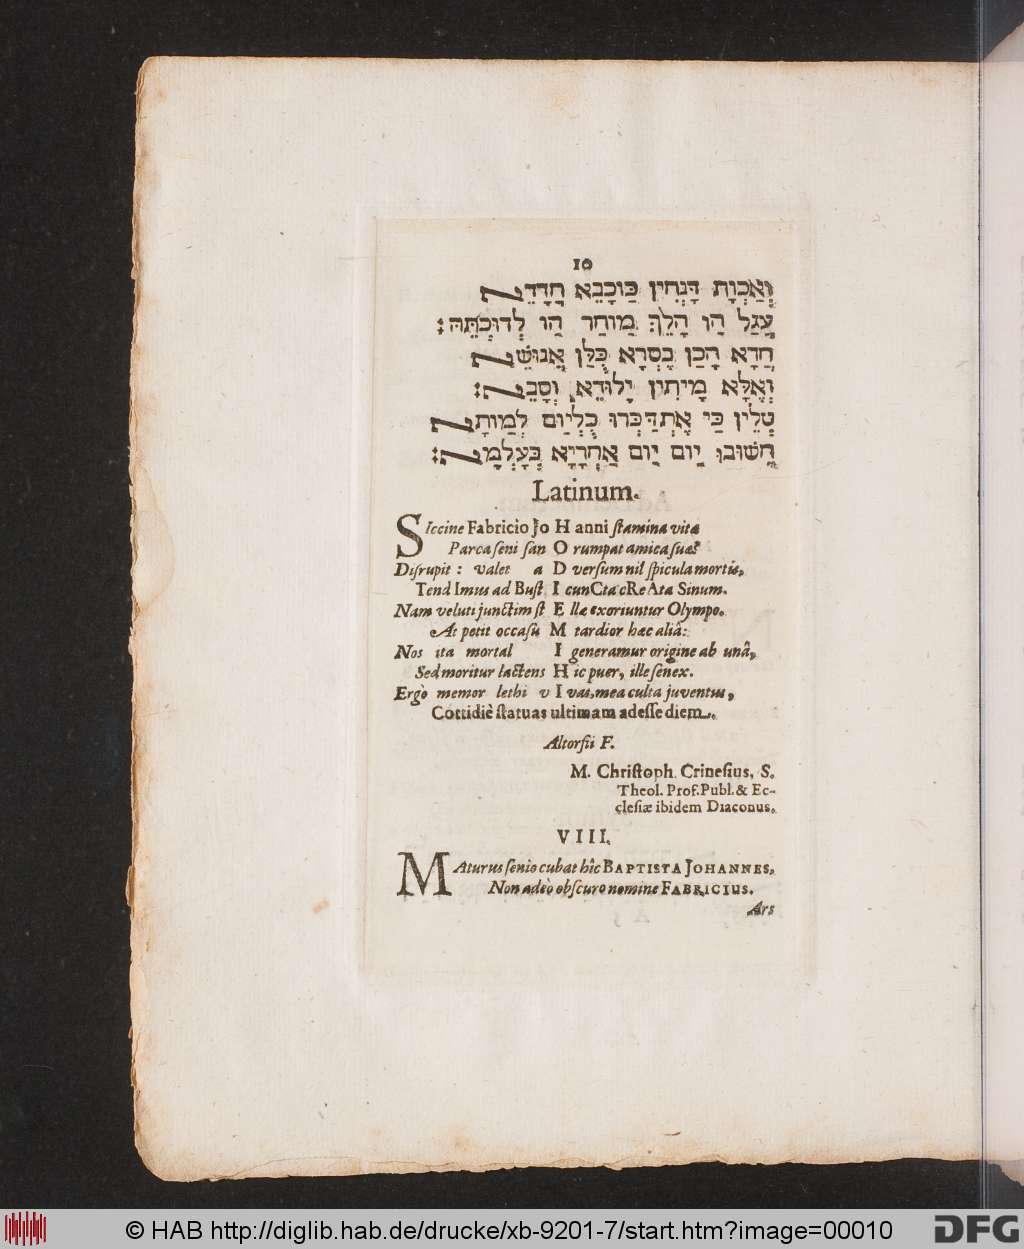 10
וְאַכְוָת דָּנְחִין כַּוּכָבֵא חֲדָדֵ
עֲגַל הָו הָלֵךְ מַוּחַר הַו לְדוּכְתֵּהּ׃
חֲדָא הָכַן בֶּסְרָא כֻּלַּן אֲנוּשֵׁ
וְאֶלָּא מָיתִין יָלוּדֵא וְסָבֵ׃
טְלֵין כַּי אֶתְדַּכְּרוּ כֻלְיַום לְמַותָ
חֲשׁוּבוּ יַום יֻום אַחְרָיָא בְּעָלְמָ׃
Latinum.
SIccine Fabricio Jo H anni stamina vitæ
Parca seni san O rumpat amica suæ?
Disrupit: valet a D versum nil spicula mortis,
Tend Imus ad Bust I cunCta cReAta Sinum.
Nam veluti junctim st E llæ exoriuntur Olympo.
At petit occasū M tardior hæc aliâ:
Nos ita mortal I generamur origine ab unâ,
Sed moritur lactens H ic puer, ille senex.
Ergò memor lethi v I vas, mea culta juventus,
Cottidiè statuas ultimam adesse diem.
Altorfii F.
M. Christoph. Crinesius, S.
Theol. Prof. Publ. & Ec-
clesiæ ibidem Diaconus.
VIII.
MAturus senio cubat hîc BAPTISTA JOHANNES,
Non adeò obscuro nomine FABRICIUS.
Ars
© HAB http://diglib.hab.de/drucke/xb-9201-7/start.htm?image=00010
DFG